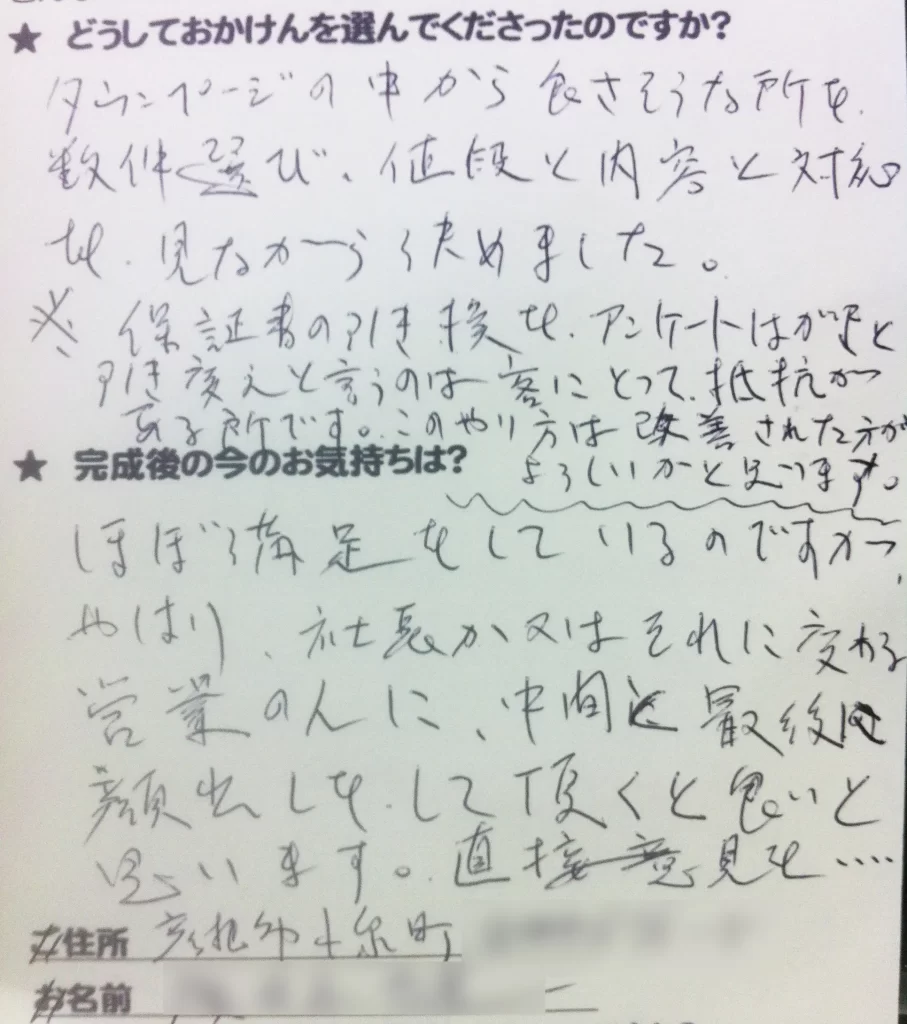 ★ どうしておかけんを選んでくださったのですか?
タウンページの中から良さそうな所を
数件選び、値段と内容と対応
を、見ながら決めました。
※ 保証書の引き換を、アンケートはがきと
引き変えと言うのは客にとって抵抗が
ある所です。このやり方は改善された方が
よろしいかと思います。
★ 完成後の今のお気持ちは?
ほぼ満足をしているのですが、
やはり、社長か又はそれに変わる
営業の人に、中間と最後に
顔出しを、して頂くと良いと
思います。直接意見を‥‥
住所 町
お名前